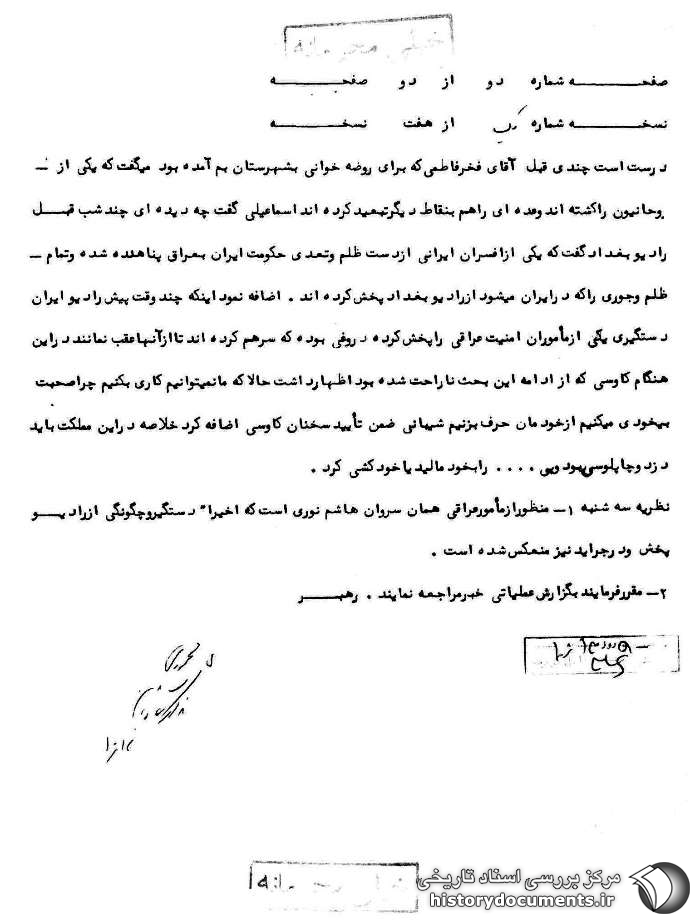 خیلی محرمانه
صفحـــــــه شماره دو از دو صفحـــــــه
نسخـــــــه شماره از هفت نسخـــــــه
درست است چندی قبل آقای فخرفاطمی که برای روضه خوانی بشهرستان بم آمده بود میگفت که یکی از ـ
روحانیون راکشته اند وعده ای راهم بنقاط دیگرتبعید کرده اند اسماعیلی گفت چه دیده ای چند شب قبـل
رادیو بغداد گفت که یکی ازافسران ایرانی ازدست ظلم وتعدی حکومت ایران بعراق پناهنده شده وتمام ـ
ظلم وجوری راکه درایران میشود ازرادیو بغداد پخش کرده اند . اضافه نمود اینکه چند وقت پیش رادیو ایران
دستگیری یکی ازمأموران امنیت عراقی راپخش کرده دروغی بوده که سرهم کرده اند تاازآنهاعقب نمانند دراین
هنگام کاوسی که از ادامه این بحث ناراحت شده بود اظهارداشت حالا که مانمیتوانیم کاری بکنیم چراصحبت
بیخودی میکنیم ازخودمان حرف بزنیم شیبانی ضمن تأیید سخنان کاوسی اضافه کرد خلاصه دراین مملکت باید
دزد وچاپلوس بود وپی .... رابخود مالید یاخودکشی کرد .
نظریه سه شنبه ۱ـ منظورازمأمورعراقی همان سروان هاشم نوری است که اخیراً دستگیروچگونگی ازرادیـــو
پخش ودرجراید نیز منعکس شده است .
۲ـ مقررفرمایند بگزارش عملیاتی خبرمراجعه نمایند . رهبـــــر
خیلی محرمانه
مرکز بررسی اسناد تاریخی
historydocuments.ir